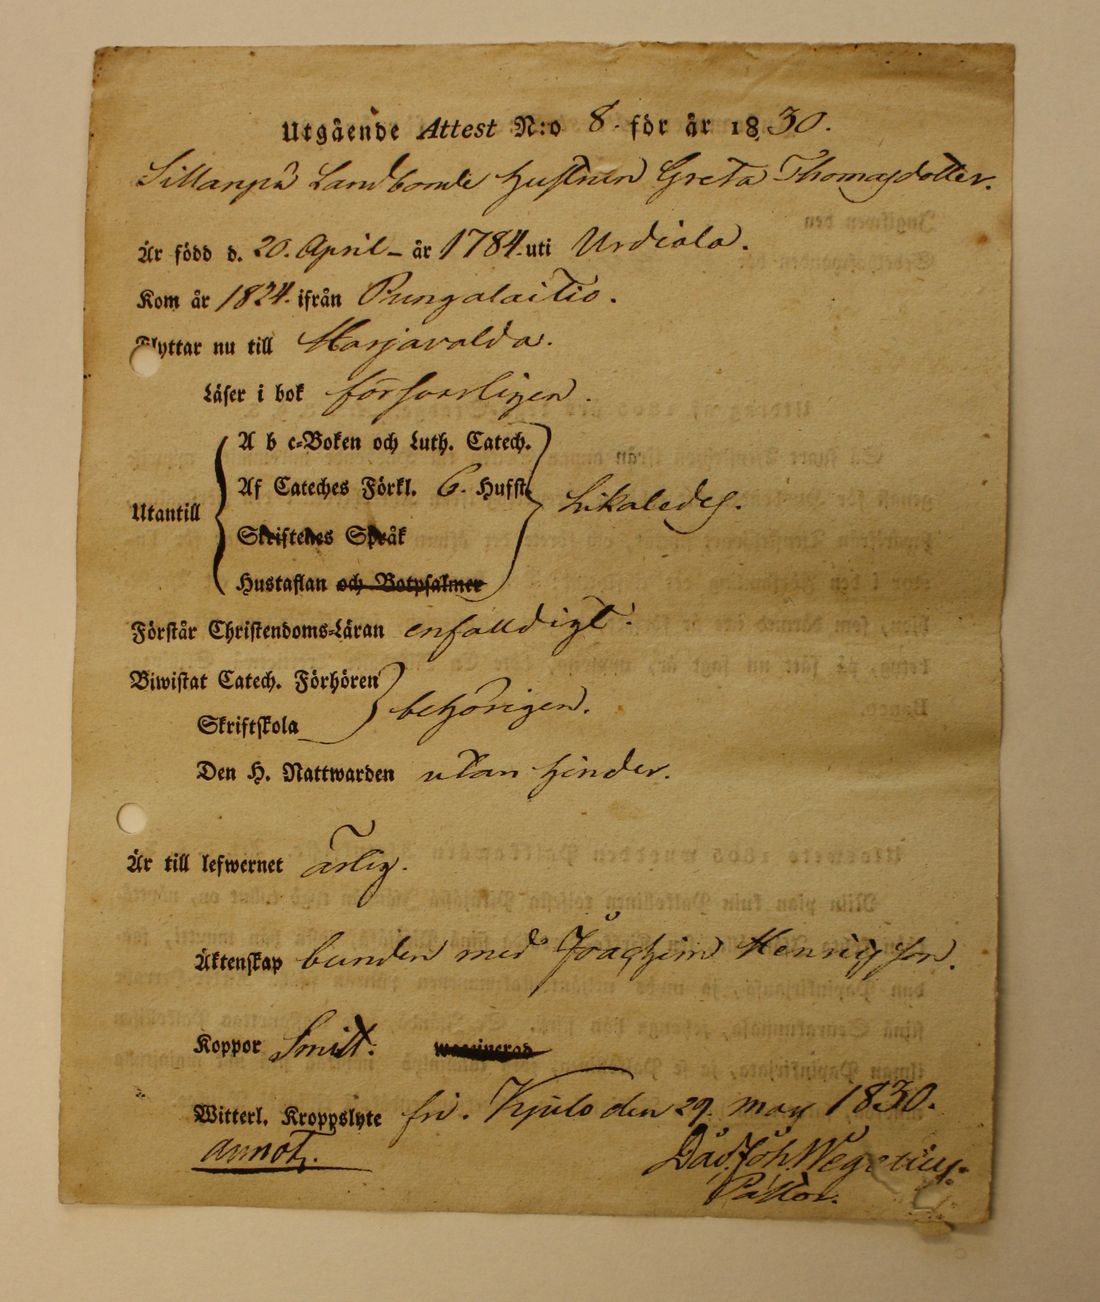 Utgående Attest N:o 8. för år 1830.
Sillanpä Landbonde hustrun Greta Thomasdotter.
Är född d. 20. April – år 1784. uti Urdiala.
Kom år 1824. ifrån Pungalaitio.
Flyttar nu till Harjavalda.
Läser i bok försvarligen.
A b c-Boken och Luth. Catech.
Af Cateches Förkl. 6. Hufst.
Utantill Likaledes.
Skriftenes Språk
Hustaflan och Botpsalmer
Förstår Christendoms-Läran enfalldigt.
Biwistat Catech. Förhören
behörigen.
Skriftskola
Den H. Nattwarden utan hinder.
Är till lefwernet ärlig.
Äktenskap bunden med Joachim Henrigsson.
Koppor Smitt. waccinerad
Witterl. Kroppslyte fri. Kjulo den 29. may 1830.
annot.
Dav. Joh. Wegelius.
Pastor.